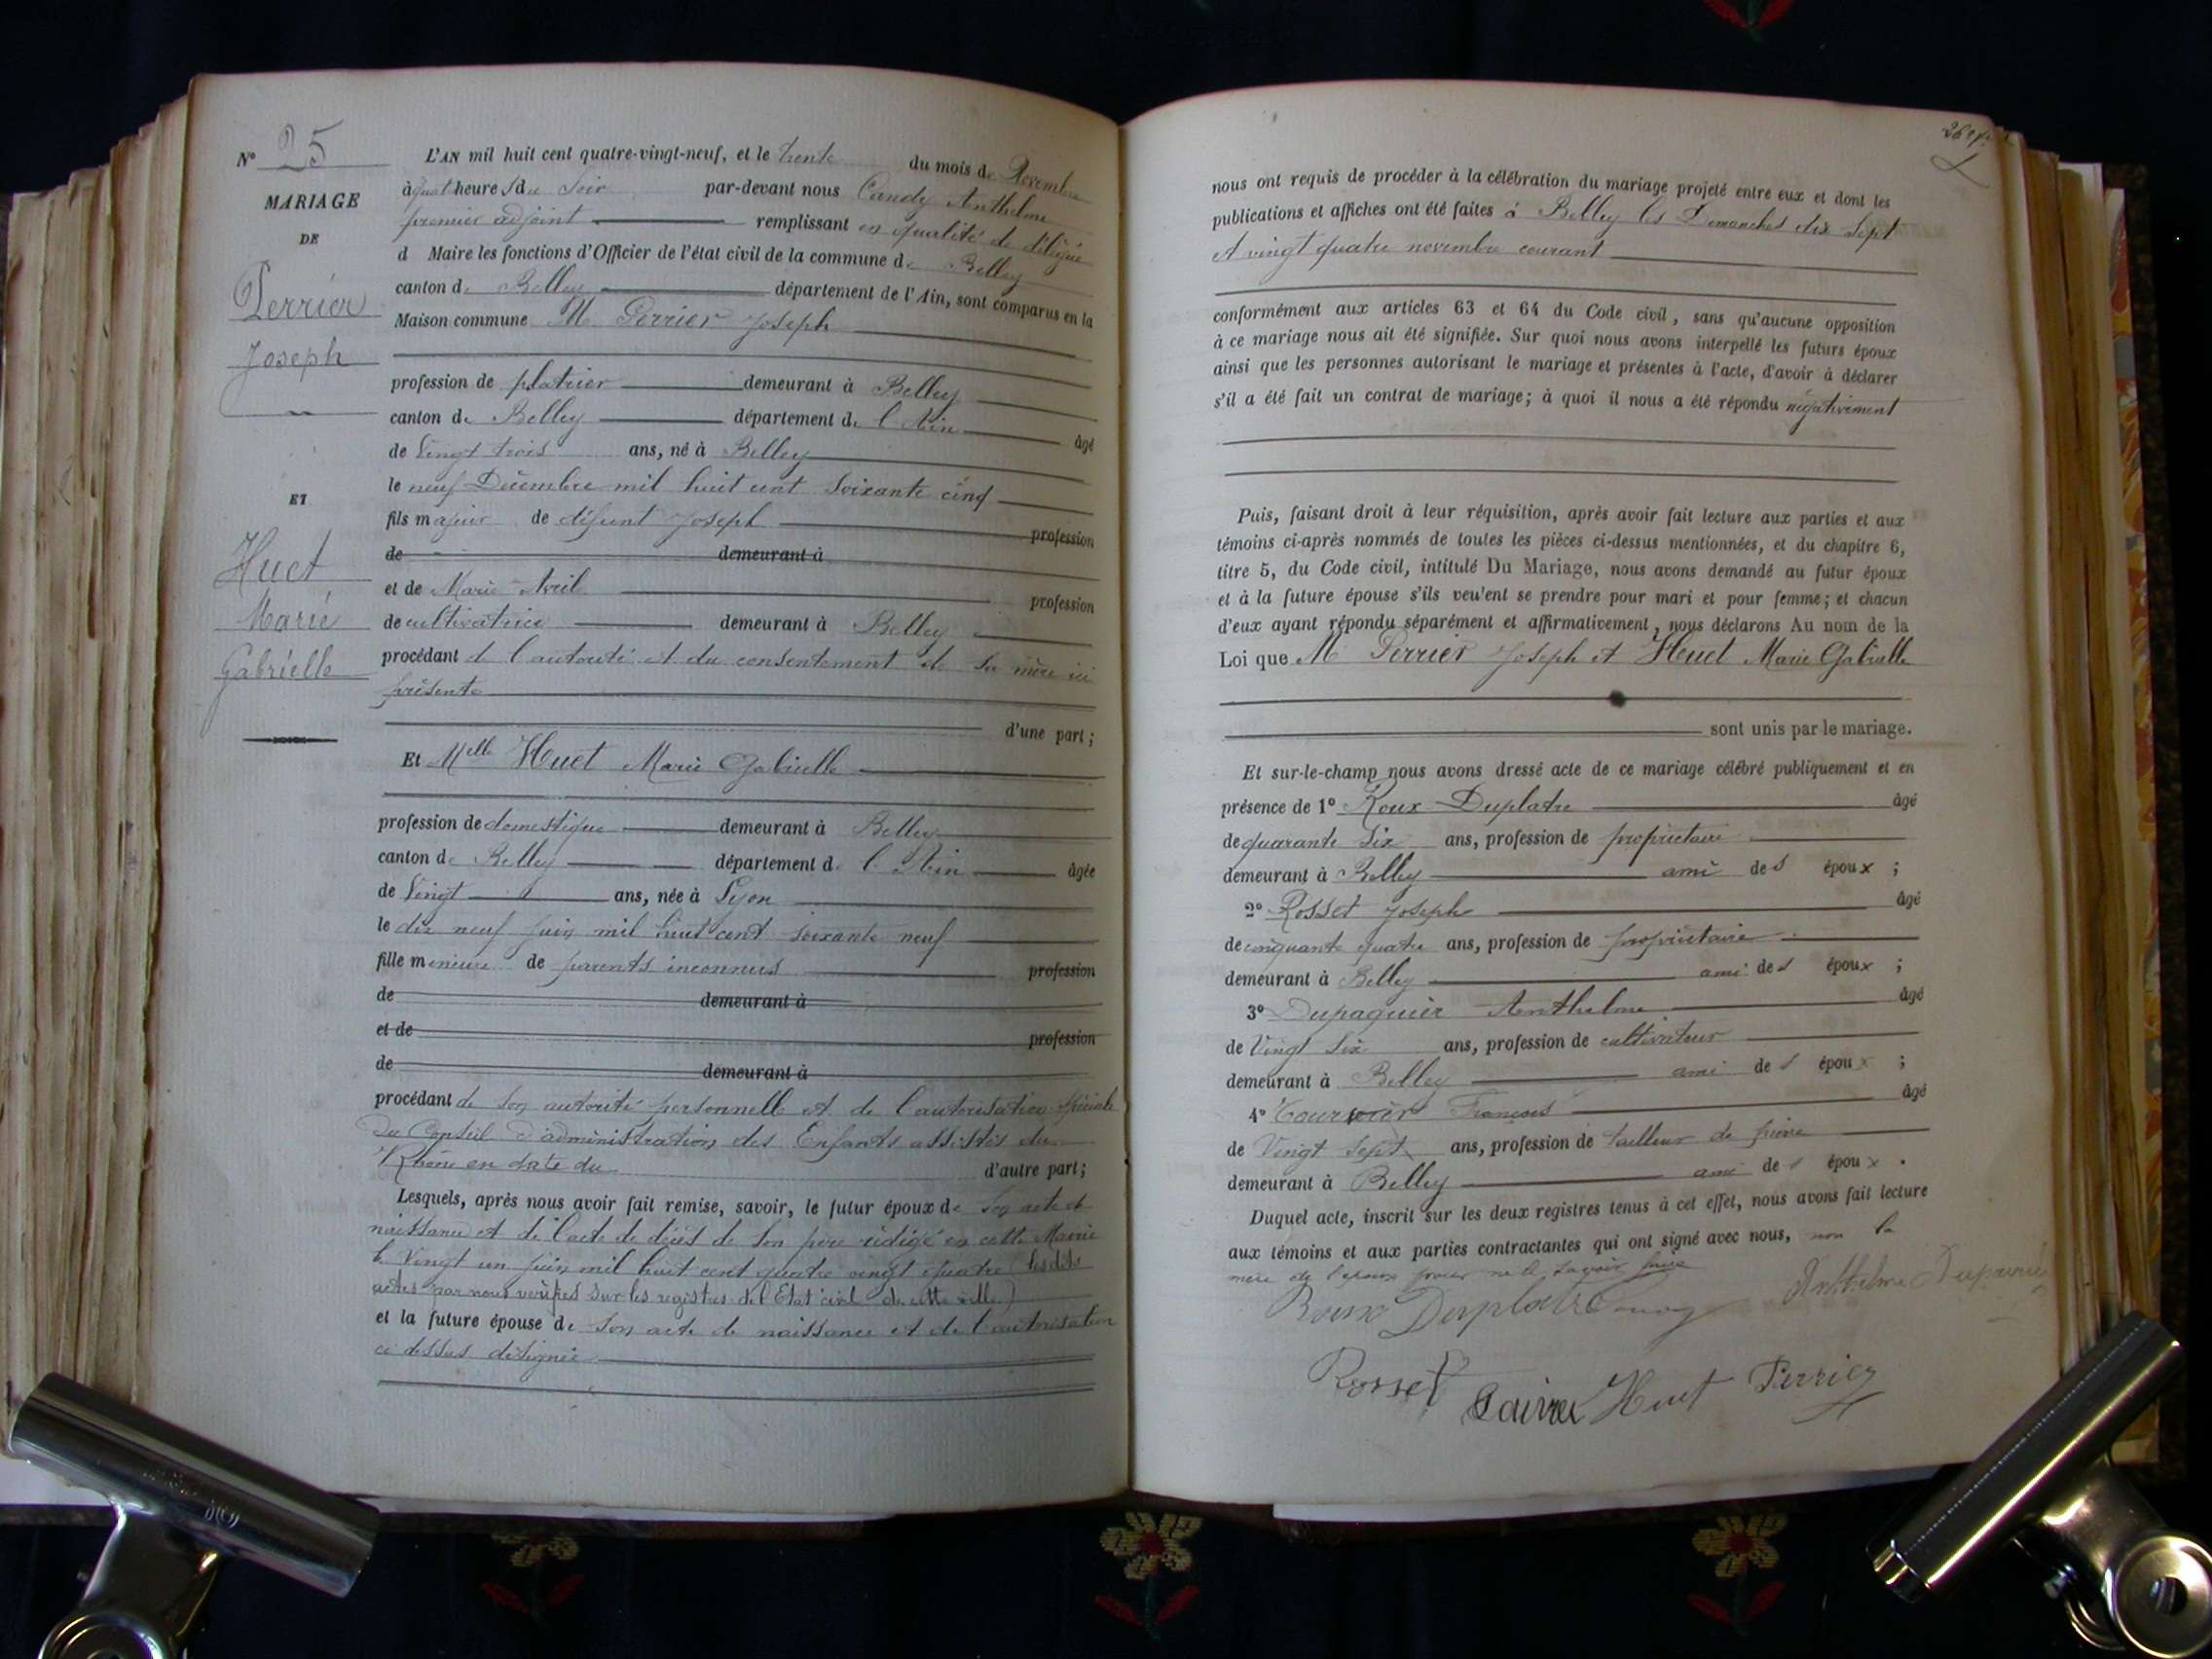 N° 25
MARIAGE
DE
Perrier
Joseph
ET
Huet
Marie
Gabrielle
L'AN mil huit cent quatre-vingt-neuf, et le trente du mois de Novembre
à quat heures du Soir par-devant nous Candy Anthelme
premier adjoint remplissant en qualité de délégué
d Maire les fonctions d'Officier de l'état civil de la commune de Belley
canton de Belley département de l'Ain, sont comparus en la
Maison commune M Perrier Joseph
profession de platrier demeurant à Belley
canton de Belley département de l'Ain âgé
de Vingt trois ans, né à Belley
le neuf Décembre mil huit cent soixante cinq
fils majeur de défunt Joseph profession
de demeurant à
et de Marie Avril profession
de cultivatrice demeurant à Belley
procédant de l'autorité et du consentement de sa mère ici
présente
d'une part;
Et Melle Huet Marie Gabrielle
profession de domestique demeurant à Belley
canton de Belley département de l'Ain âgée
de Vingt ans, née à Lyon
le dix neuf juin mil huit cent soixante neuf
fille mineure de parents inconnus profession
de demeurant à
et de profession
de demeurant à
procédant de son autorité personnelle et de l'autorisation spéciale
du Conseil d'administration des Enfants assistés du
Rhône en date du d'autre part;
Lesquels, après nous avoir fait remise, savoir, le futur époux de son acte de
naissance et de l'acte de décès de son père rédigé en cette Mairie
le Vingt un juin mil huit cent quatre vingt quatre (lesdits
actes par nous vérifiés sur les registres de l'Etat civil de cette ville)
et la future épouse de son acte de naissance et de l'autorisation
ci dessus désignée
nous ont requis de procéder à la célébration du mariage projeté entre eux et dont les
publications et affiches ont été faites à Belley les Dimanches dix sept
et vingt quatre novembre courant
conformément aux articles 63 et 64 du Code civil, sans qu'aucune opposition
à ce mariage nous ait été signifiée. Sur quoi nous avons interpellé les futurs époux
ainsi que les personnes autorisant le mariage et présentes à l'acte, d'avoir à déclarer
s'il a été fait un contrat de mariage; à quoi il nous a été répondu négativement
Puis, faisant droit à leur réquisition, après avoir fait lecture aux parties et aux
témoins ci-après nommés de toutes les pièces ci-dessus mentionnées, et du chapitre 6,
titre 5, du Code civil, intitulé Du Mariage, nous avons demandé au futur époux
et à la future épouse s'ils veu'ent se prendre pour mari et pour femme; et chacun
d'eux ayant répondu séparément et affirmativement, nous déclarons Au nom de la
Loi que M Perrier Joseph et Huet Marie Gabrielle
sont unis par le mariage.
Et sur-le-champ nous avons dressé acte de ce mariage célébré publiquement et en
présence de 1° Roux Duplatre âgé
de quarante six ans, profession de propriétaire
demeurant à Belley ami des époux ;
2° Rosset Joseph âgé
de cinquante quatre ans, profession de propriétaire
demeurant à Belley ami des époux ;
3° Dupaquier Anthelme âgé
de Vingt six ans, profession de cultivateur
demeurant à Belley ami des époux ;
4° François âgé
de Vingt sept ans, profession de tailleur de pierre
demeurant à Belley ami des époux .
Duquel acte, inscrit sur les deux registres tenus à cet effet, nous avons fait lecture
aux témoins et aux parties contractantes qui ont signé avec nous, non la
mère de l'époux pour ne le savoir faire
Roux Duplatre Candy Anthelme
Rosset Huet Perrier